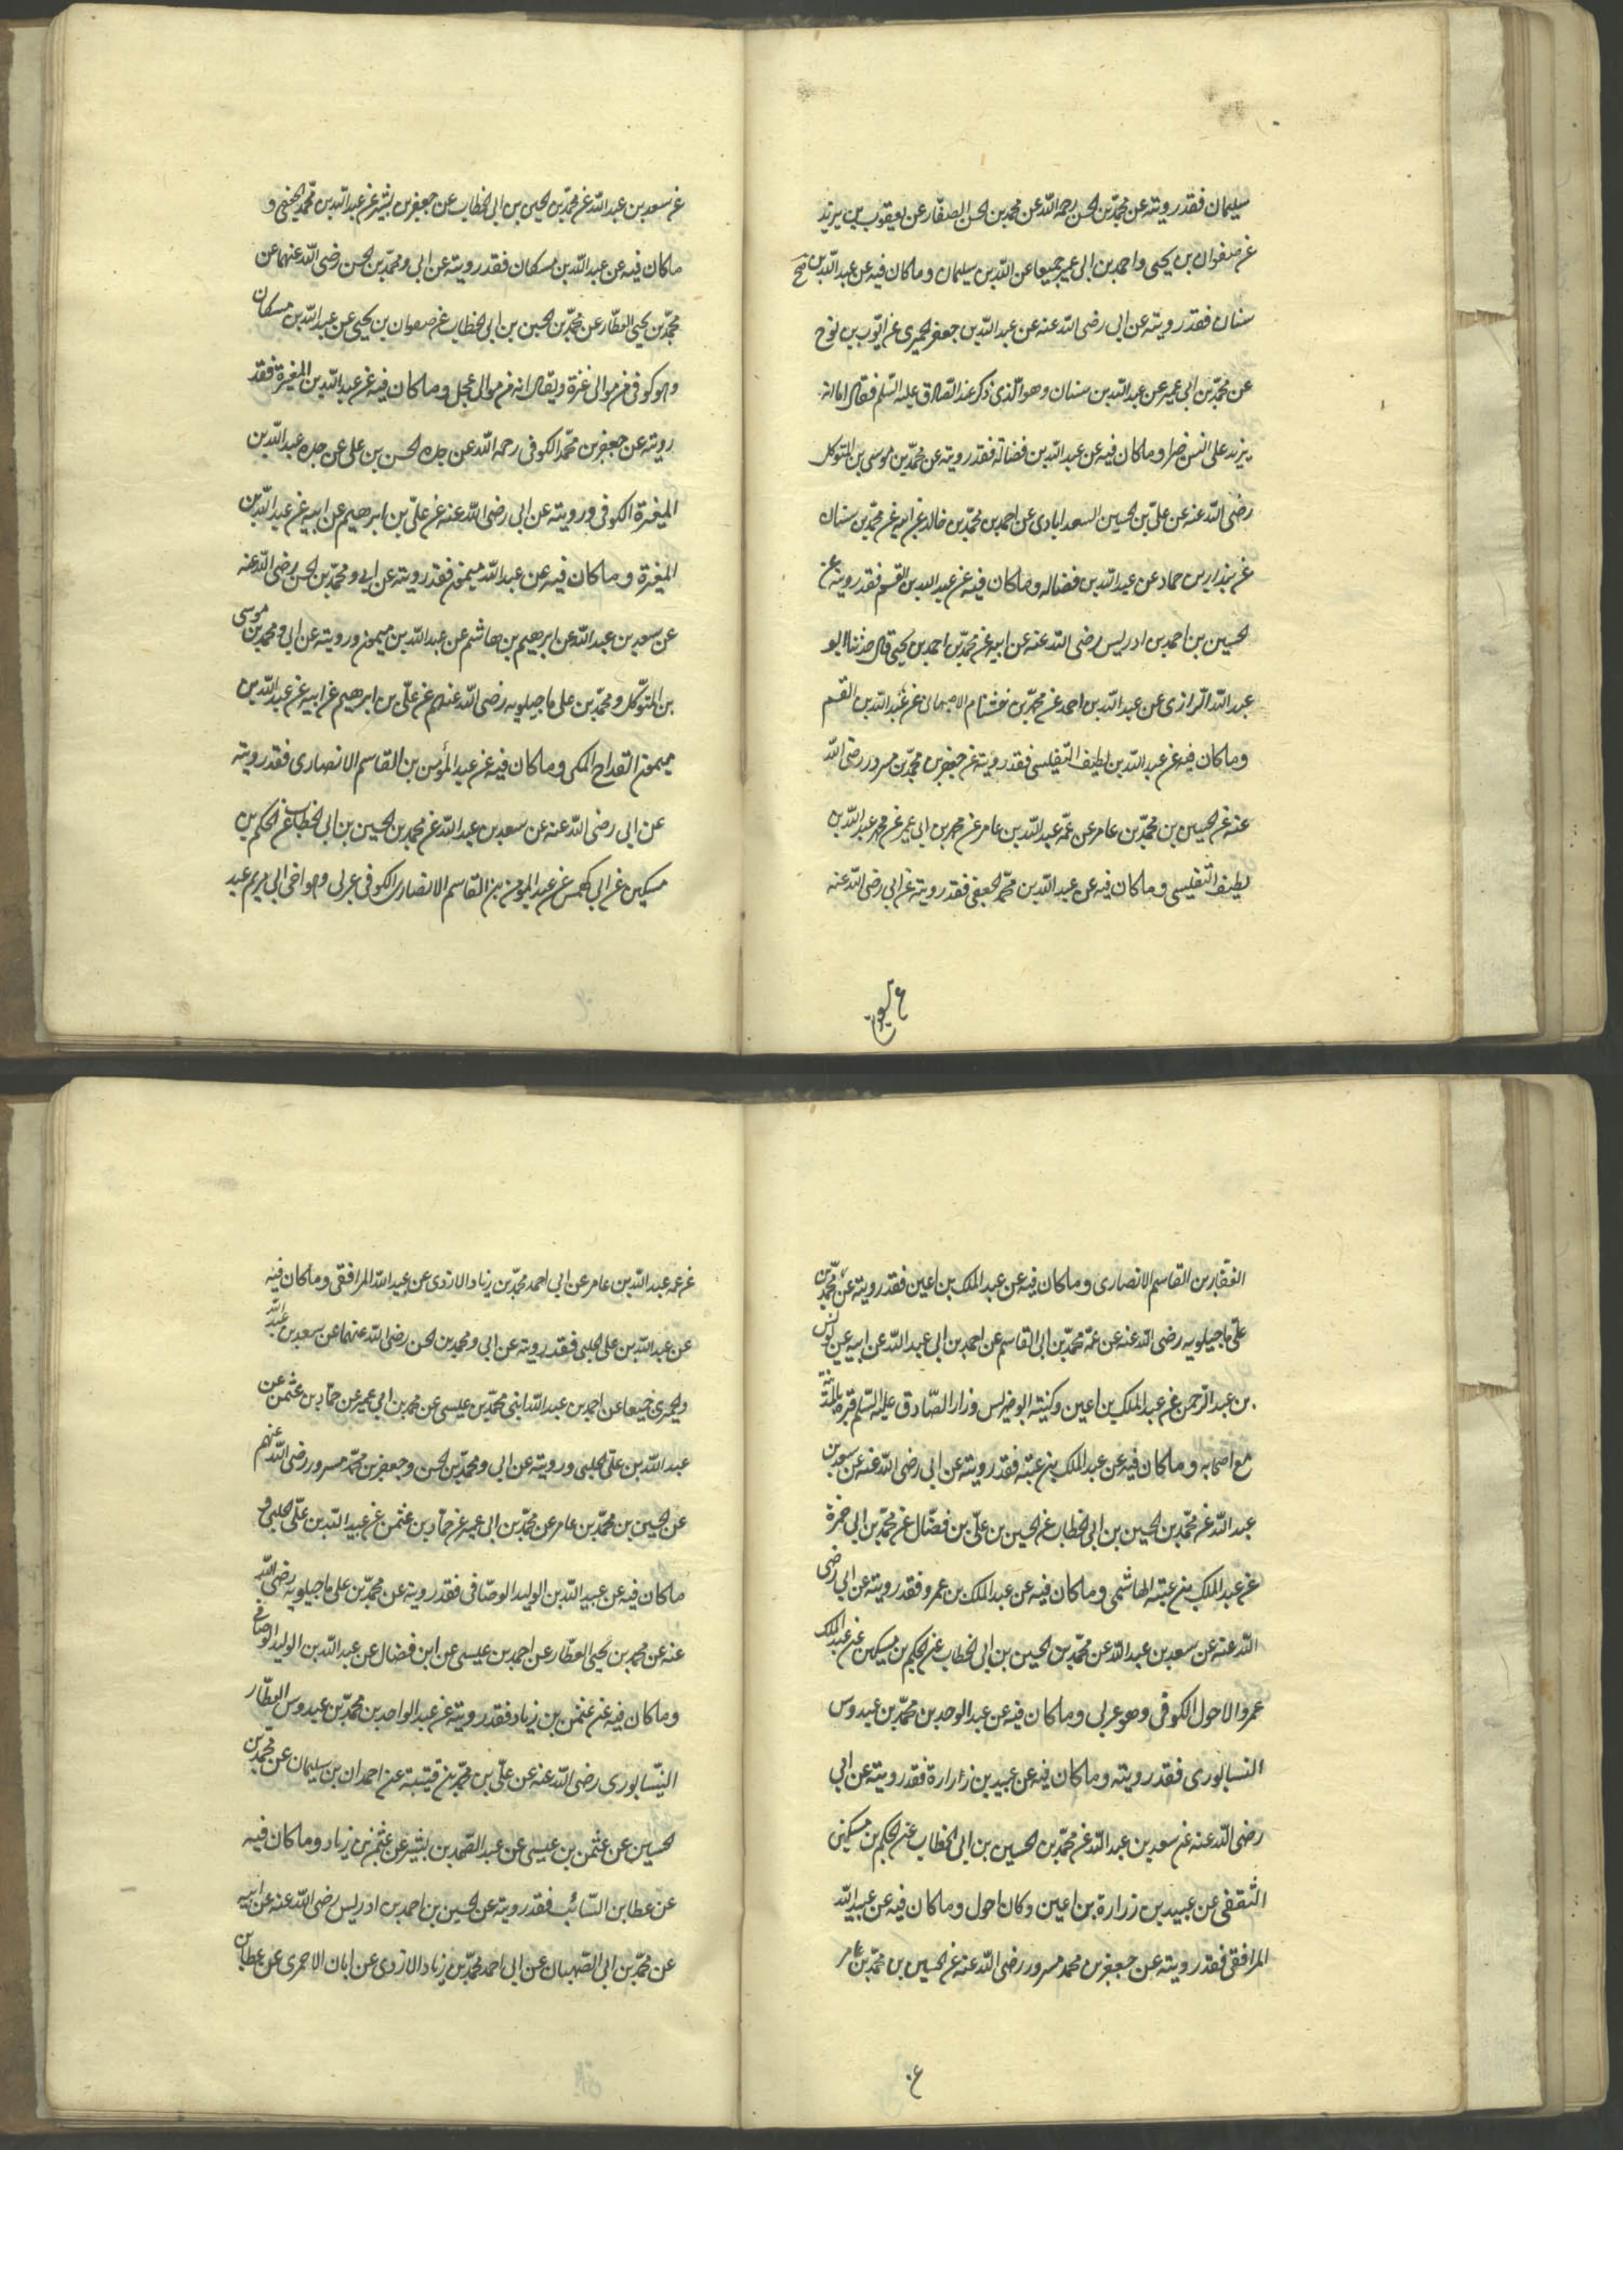 سليمان فقد رويته عن محمد بن الحسن رحمه الله عن محمد بن الحسن الصفار عن يعقوب بن يزيد
عن صفوان بن يحيى واحمد بن ابى عمير جميعا عن عبد الله بن سليمان وما كان فيه عن عبد الله بن
سنان فقد رويته عن ابى رضى الله عنه عن عبد الله بن جعفر الحميرى عن ايوب بن نوح
عن محمد بن ابى عمير عن عبد الله بن سنان وهو الذى ذكر عند الصادق عليه السلم فقال اما انه
يزيد على السن خيرا وما كان فيه عن عبد الله بن فضالة فقد رويته عن محمد بن موسى بن المتوكل
رضى الله عنه عن على بن الحسين السعدابادى عن احمد بن محمد بن خالد عن ابيه عن محمد بن سنان
عن بندار بن حماد عن عبد الله بن فضاله وما كان فيه عن عبد الله بن القسم فقد رويته عن
الحسين بن احمد بن ادريس رضى الله عنه عن ابيه عن محمد بن احمد بن يحيى قال حدثنا ابو
عبد الله الرازى عن عبد الله بن احمد عن محمد بن خشنام الاصبهانى عن عبد الله بن القسم
وما كان فيه عن عبد الله بن لطيف التفليسى فقد رويته عن جعفر بن محمد بن مسرور رضى الله
عنه عن الحسين بن محمد بن عامر عن عمه عبد الله بن عامر عن محمد بن ابى عمير عن عبد الله بن
لطيف التفليسى وما كان فيه عن عبد الله بن محمد الجعفى فقد رويته عن ابى رضى الله عنه
عن سعد بن عبد الله عن محمد بن الحسين بن ابى الخطاب عن جعفر بن بشير عن عبد الله بن محمد الجعفى و
ما كان فيه عن عبد الله بن مسكان فقد رويته عن ابى ومحمد بن الحسن رضى الله عنهما عن
محمد بن يحيى العطار عن محمد بن الحسين بن ابى الخطاب عن صفوان بن يحيى عن عبد الله بن مسكان
وهو كوفى من موالى عنزة ويقال انه من موالى عجل وما كان فيه عن عبد الله بن المغيرة فقد
رويته عن جعفر بن محمد الكوفى رحمه الله عن جده الحسن بن على عن جده عبد الله بن
المغيرة الكوفى ورويته عن ابى رضى الله عنه عن على بن ابرهيم عن ابيه عن عبد الله بن
المغيرة وما كان فيه عن عبد الله ميمون فقد رويته عن ابى ومحمد بن الحسن رضى الله عنه
عن سعد بن عبد الله عن ابرهيم بن هاشم عن عبد الله بن ميمون ورويته عن ابى ومحمد بن موسى
بن المتوكل ومحمد بن على ماجيلويه رضى الله عنهم عن على بن ابرهيم عن ابيه عن عبد الله بن
ميمون القداح المكى وما كان فيه عن عبد المؤمن بن القاسم الانصارى فقد رويته
عن ابى رضى الله عنه عن سعد بن عبد الله عن محمد بن الحسين بن ابى الخطاب عن الحكم بن
مسكين عن ابى كهمس عن عبد المومن بن القاسم الانصارى الكوفى عربى وهو اخى ابى مريم عبد
الغفار بن القاسم الانصارى وما كان فيه عن عبد الملك بن اعين فقد رويته عن محمد بن
على ماجيلويه رضى الله عنه عن عمه محمد بن ابى القاسم عن احمد بن ابى عبد الله عن ابيه عن يونس
بن عبد الرحمن عن عبد الملك بن اعين وكنيته ابو ضريس وزار الصادق عليه السلم قبره بالمدينة
مع اصحابه وما كان فيه عن عبد الملك بن عتبة فقد رويته عن ابى رضى الله عنه عن سعد بن
عبد الله عن محمد بن الحسين بن ابى الخطاب عن الحسين بن على بن فضال عن محمد بن ابى حمزة
عن عبد الملك بن عتبة الهاشمى وما كان فيه عن عبد الملك بن عمرو فقد رويته عن ابى رضى
الله عنه عن سعد بن عبد الله عن محمد بن الحسين بن ابى الخطاب عن الحكم بن مسكين عن عبد الملك
عمرو الاحول الكوفى وهو عربى وما كان فيه عن عبد الوحد بن محمد بن عبدوس
النسابورى فقد رويته وما كان فيه عن عبيد بن زرارة فقد رويته عن ابى
رضى الله عنه عن سعد بن عبد الله عن محمد بن الحسين بن ابى الخطاب عن الحكم بن مسكين
الثقفى عن عبيد بن زرارة بن اعين وكان احول وما كان فيه عن عبيد الله
المرافقى فقد رويته عن جعفر بن محمد مسرور رضى الله عنه عن الحسين بن محمد بن عامر
عن عمه عبد الله بن عامر عن ابى احمد محمد بن زياد الازدى عن عبيد الله المرافقى وما كان فيه
عن عبد الله بن على الحلبى فقد رويته عن ابى ومحمد بن الحسن رضى الله عنهما عن سعد بن عبد الله
والحميرى جميعا عن احمد بن عبد الله ابنى محمد بن عيسى عن محمد بن ابى عمير عن حماد بن عثمن عن
عبد الله بن على الحلبى ورويته عن ابى ومحمد بن الحسن وجعفر بن محمد مسرور رضى الله عنهم
عن الحسين بن محمد بن عامر عن محمد بن ابى عمير عن حماد بن عثمن عن عبيد الله بن على الحلبى و
ما كان فيه عن عبيد الله بن الوليد الوصافى فقد رويته عن محمد بن على ماجيلويه رضى الله
عنه عن محمد بن يحيى العطار عن احمد بن عيسى عن ابن فضال عن عبد الله بن الوليد الوصافى
وما كان فيه عن عثمن بن زياد فقد رويته عن عبد الواحد بن محمد بن عبدوس العطار
النيسابورى رضى الله عنه عن على بن محمد بن قتيبة عن احمدان بن سليمان عن محمد بن
الحسين عن عثمن بن عيسى عن عبد الصمد بن بشير عن عثمن بن زياد وما كان فيه
عن عطا بن السائب فقد رويته عن الحسين بن احمد بن ادريس رضى الله عنه عن ابيه
عن محمد بن ابى الصهبان عن ابى احمد محمد بن زياد الازدى عن ابان الاحمرى عن عطا بن